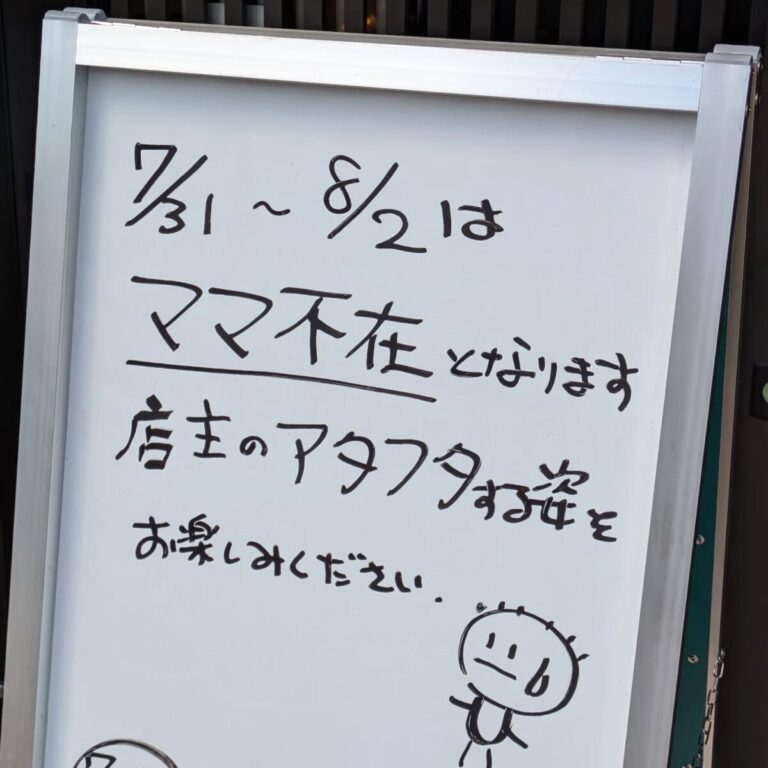 7/31～8/2は
ママ不在となります
店主のアタフタする姿を
お楽しみください.